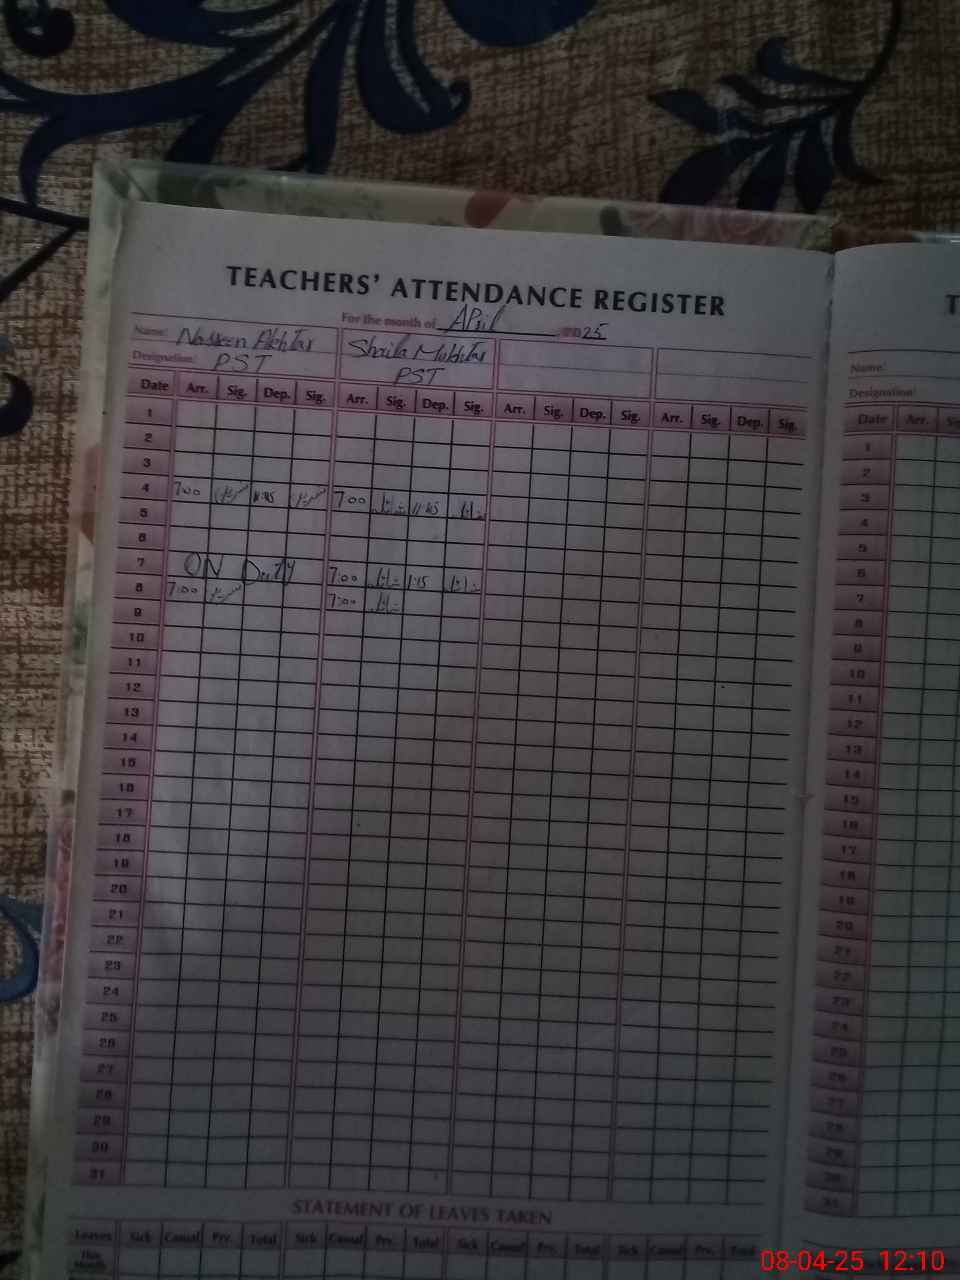 TEACHERS' ATTENDANCE REGISTER
For the month of April 2025
Name: Nasreen Akhtar Shaila Mukhtar
Designation: PST PST
Date Arr. Sig. Dep. Sig. Arr. Sig. Dep. Sig. Arr. Sig. Dep. Sig. Arr. Sig. Dep. Sig.
1
2
3
4 7:00 11:45 7:00 11:45
5
6
7 ON Duty 7:00 1:15
8 7:00 7:00
9
10
11
12
13
14
15
16
17
18
19
20
21
22
23
24
25
26
27
28
29
30
31
STATEMENT OF LEAVES TAKEN
Leaves Sick Casual Prv. Total Sick Casual Prv. Total Sick Casual Prv. Total Sick Casual Prv. Total
This Month
T
Name:
Designation:
Date Arr.
1
2
3
4
5
6
7
8
9
10
11
12
13
14
15
16
17
18
19
20
21
22
23
24
25
26
27
28
29
30
31
08-04-25 12:10